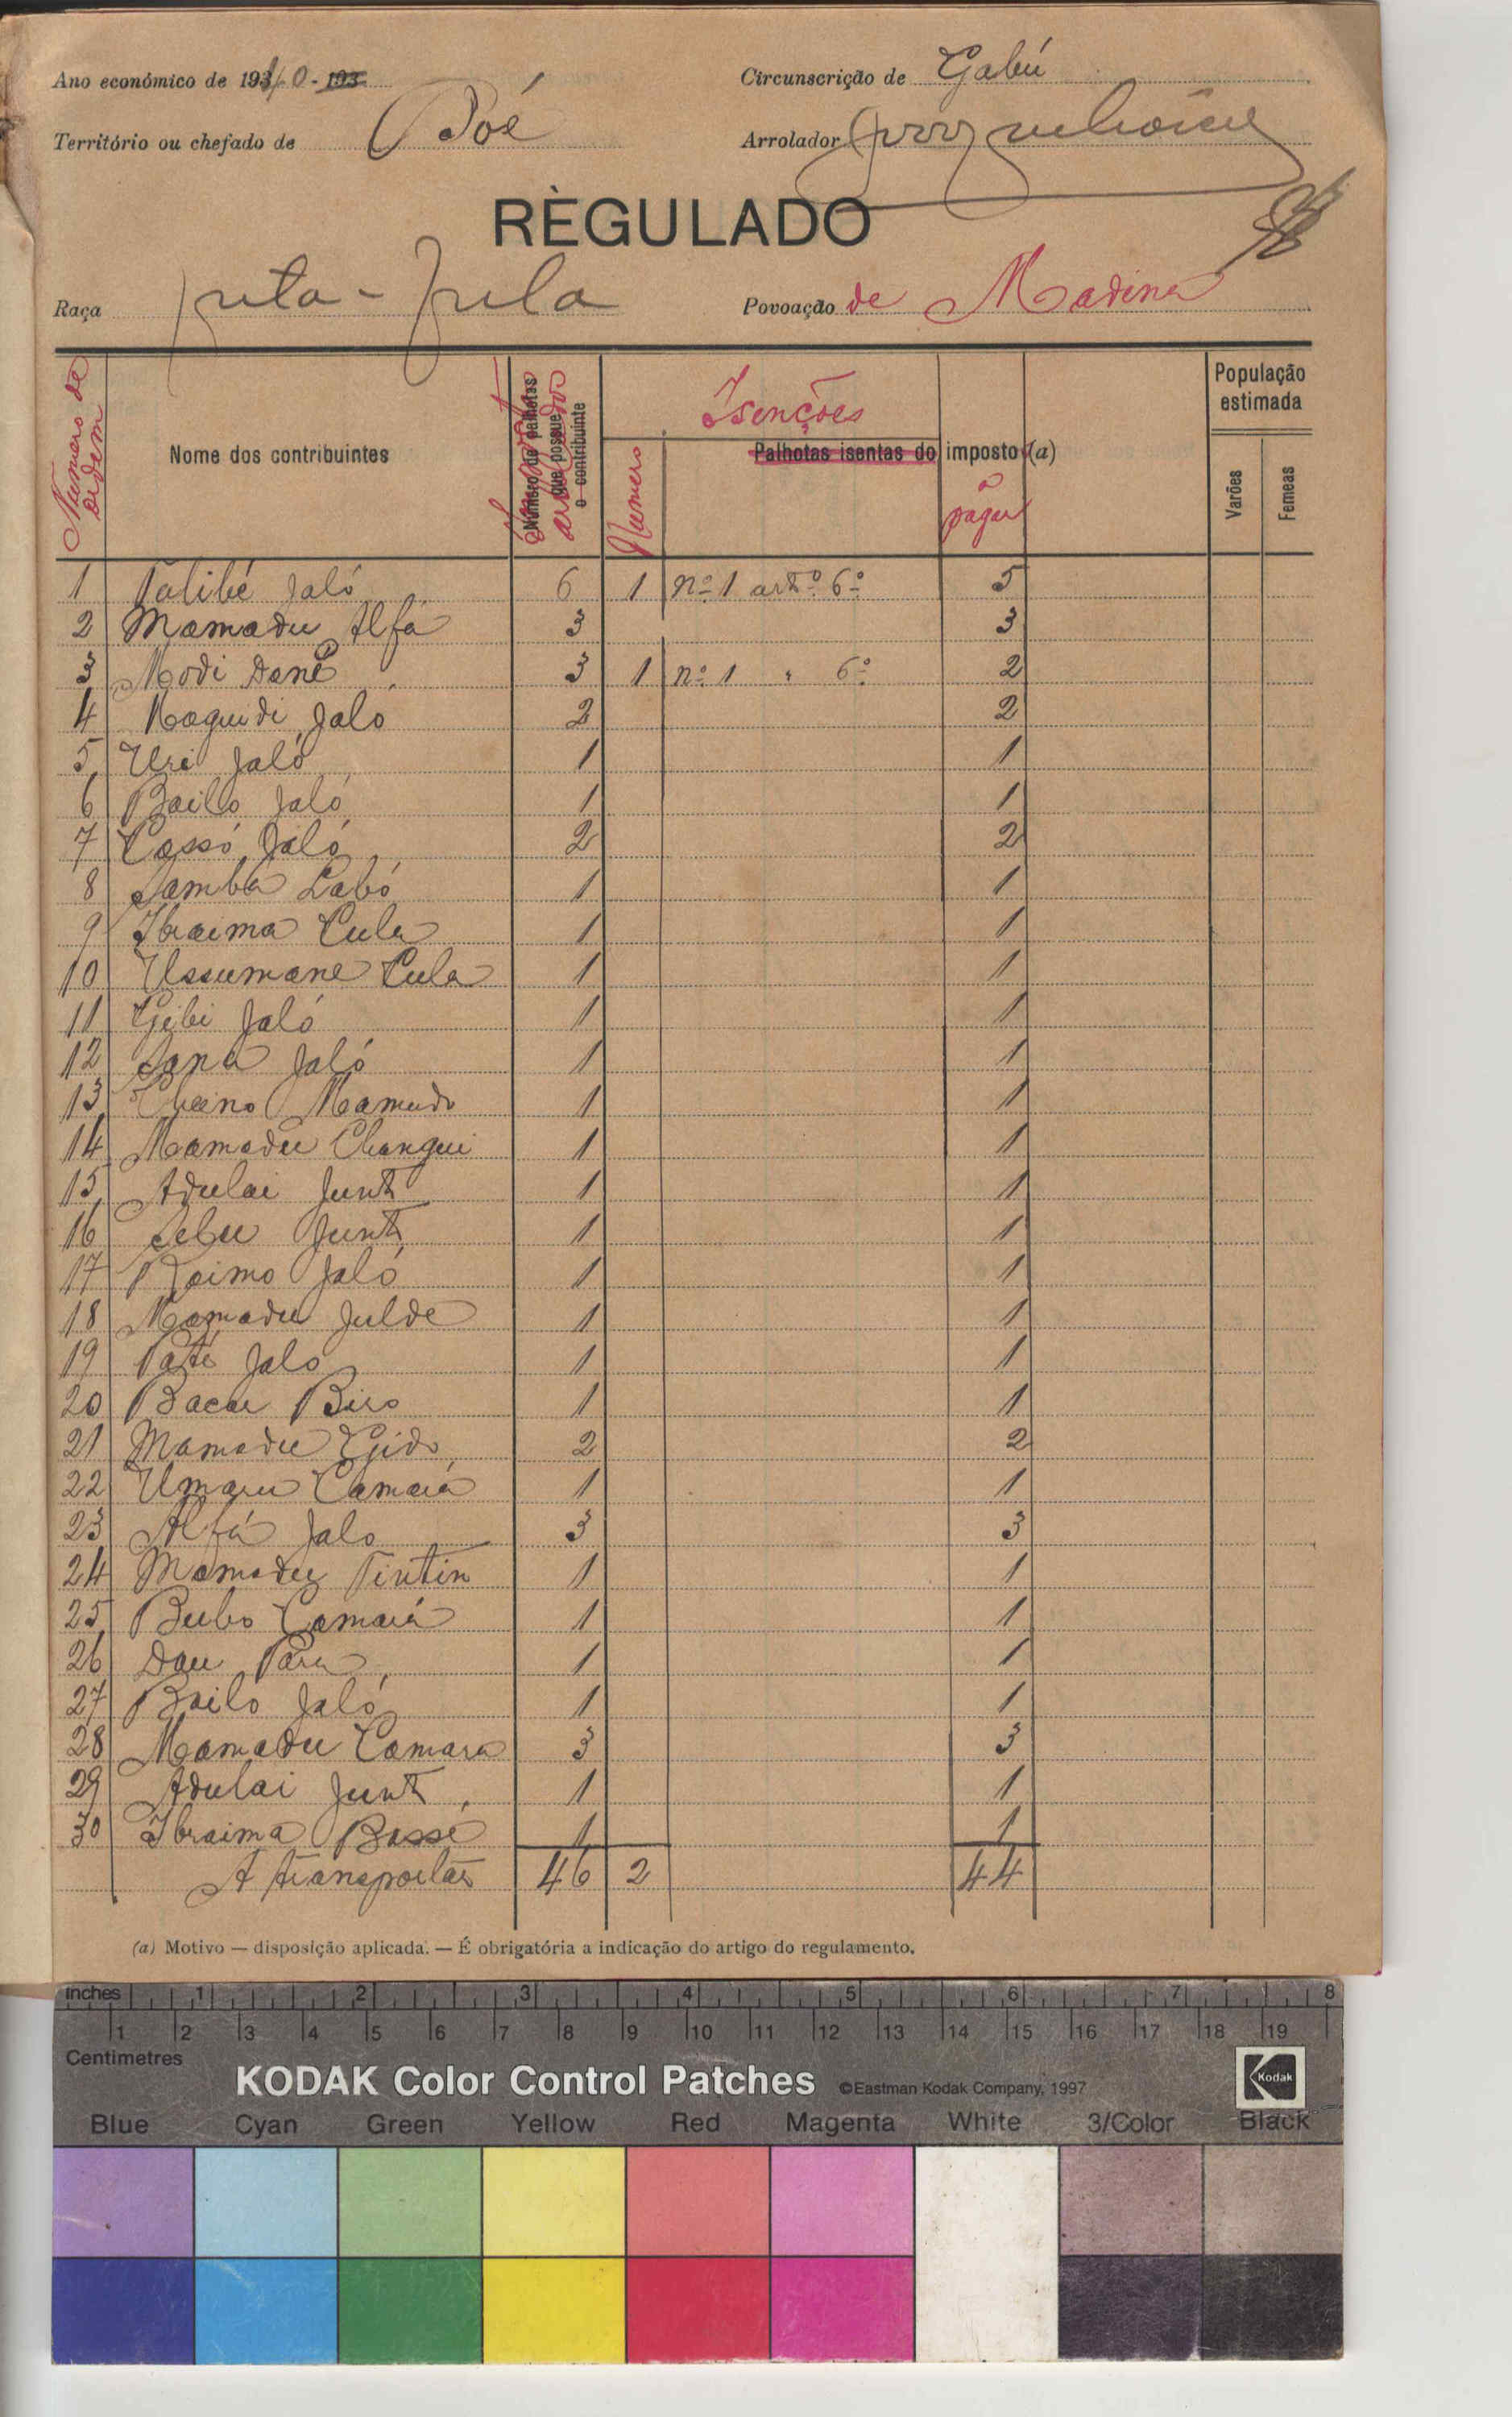 Ano económico de 1940 - 193
Circunscrição de Gabú
Território ou chefado de Boé
Arrolador
RÈGULADO
Raça Futa-Fula
Povoação de Madina
Numero de ordem
Nome dos contribuintes
Número de palhotas que possue o contribuinte
arrolados
Isenções
Numero
Palhotas isentas do imposto (a)
a pagar
População estimada
Varões
Femeas
1 Talibé Jaló 6 1 nº 1 artº 6º 5
2 Mamadu Alfá 3 3
3 Modi Dané 3 1 nº 1 " 6º 2
4 Maguidi Jaló 2 2
5 Uri Jaló 1 1
6 Bailo Jaló 1 1
7 Cassó Jaló 2 2
8 Samba Labó 1 1
9 Ibraima Cula 1 1
10 Ussumane Cula 1 1
11 Gibi Jaló 1 1
12 Sana Jaló 1 1
13 Mamudo 1 1
14 Mamadu Changui 1 1
15 Adulai Junt 1 1
16 Selu Junt 1 1
17 Jaló 1 1
18 Mamadu Julde 1 1
19 Paté Jalo 1 1
20 Bacar Biro 1 1
21 Mamadu Egido 2 2
22 Umaru Camará 1 1
23 Alfá Jalo 3 3
24 Mamadu Tintin 1 1
25 Bubo Camará 1 1
26 Dau Para 1 1
27 Bailo Jaló 1 1
28 Mamadu Camara 3 3
29 Adulai Junt 1 1
30 Ibraima Bassé 1 1
A transportar 46 2 44
(a) Motivo — disposição aplicada. — É obrigatória a indicação do artigo do regulamento.
Inches 1 2 3 4 5 6 7 8
1 2 3 4 5 6 7 8 9 10 11 12 13 14 15 16 17 18 19
Centimetres
KODAK Color Control Patches ©Eastman Kodak Company, 1997 Kodak
Blue Cyan Green Yellow Red Magenta White 3/Color Black